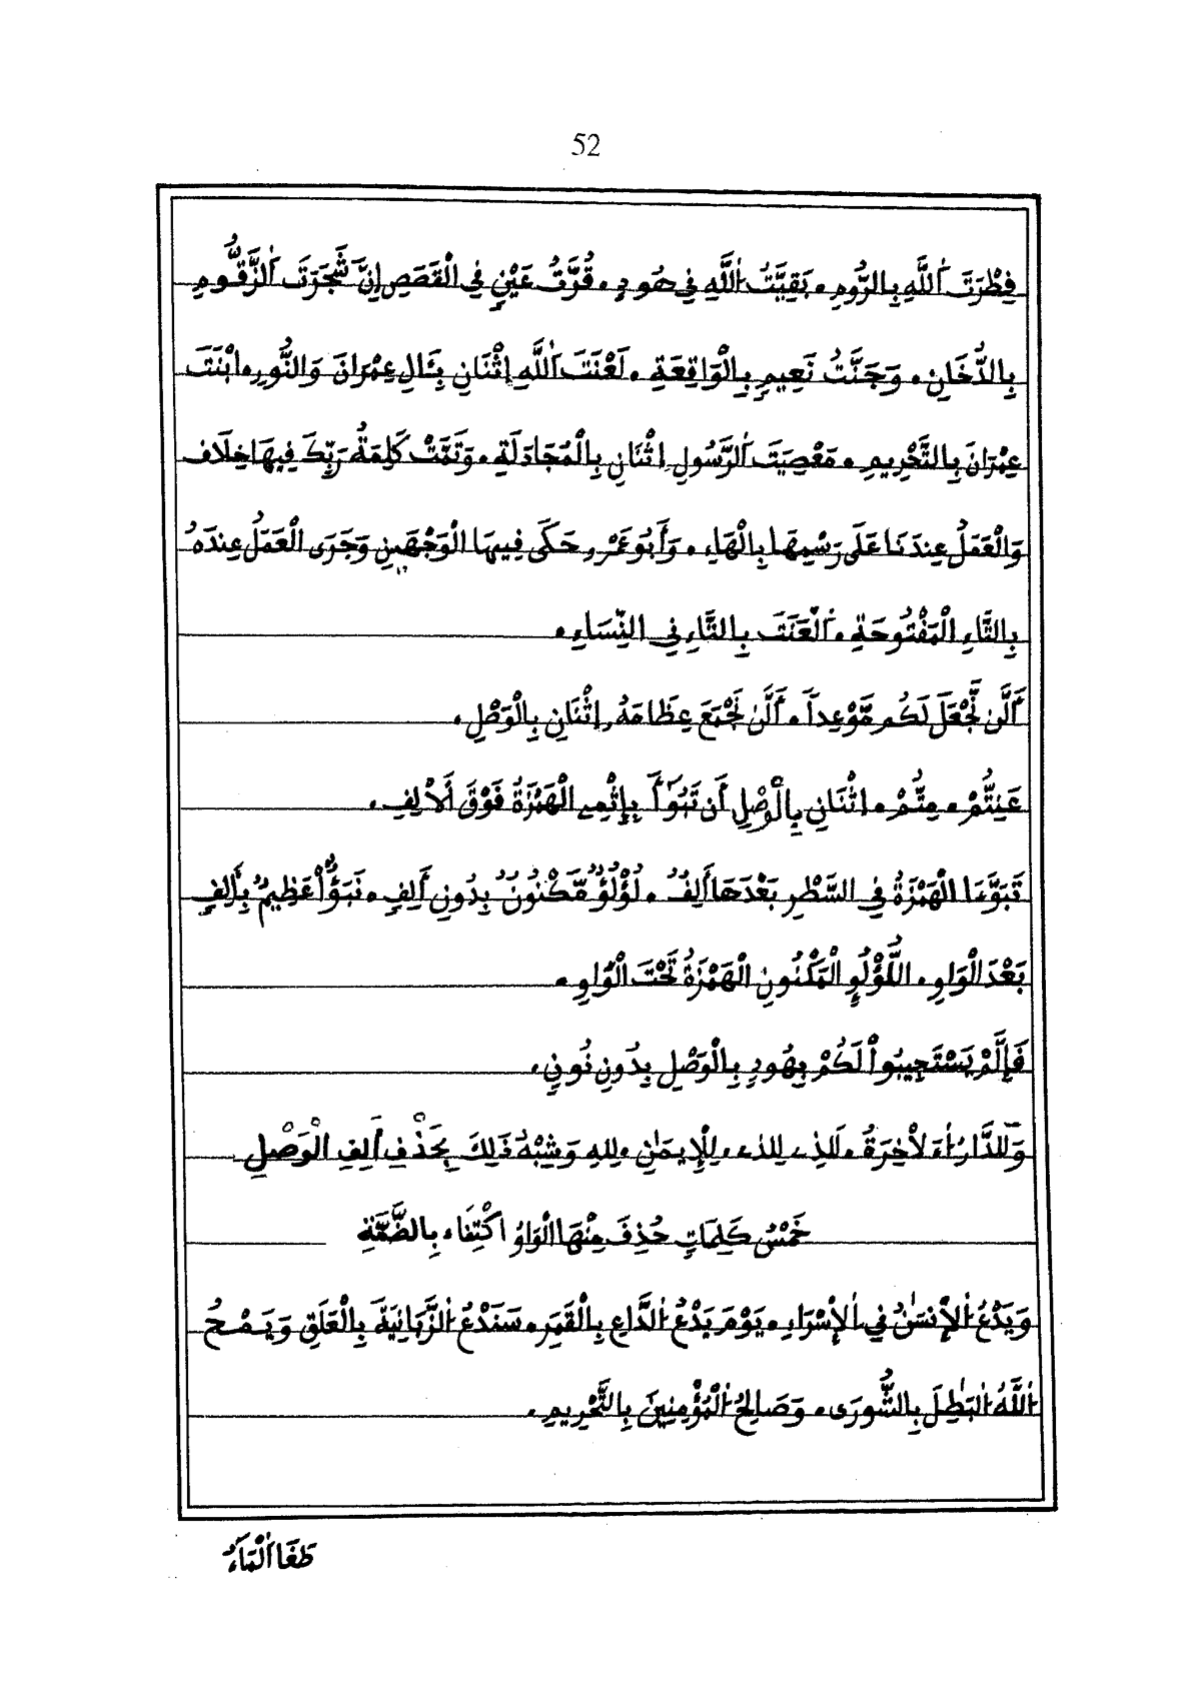 52
فِطْرَتَ اَ۬للَّهِ بِالرُّومِ. بَقِيَّتُ اُ۬للَّهِ فِي هُودٍ. قُرَّتُ عَيْنٍ فِي الْقَصَصِ إِنَّ شَجَرَتَ اَ۬لزَّقُّومِ
بِالدُّخَانِ. وَجَنَّتُ نَعِيمٍ بِالْوَاقِعَةِ. لَعْنَتَ اَ۬للَّهِ اِثْنَانِ بِـَٔالِ عِمْرَانَ وَالنُّورِ. اَبْنَتَ
عِمْرَانَ بِالتَّحْرِيمِ. مَعْصِيَتَ اِ۬لرَّسُولِ اِثْنَانِ بِالْمُجَادَلَةِ. وَتَمَّتْ كَلِمَةُ رَبِّكَ فِيهَا خِلَاف
وَالْعَمَلُ عِندَنَا عَلَى رَسْمِهَا بِالْهَاءِ. وَأَبُو عَمْرٍو حَكَى فِيهَا الْوَجْهَيْنِ وَجَرَى الْعَمَلُ عِندَهُ
بِالتَّاءِ الْمَفْتُوحَةِ. اَ۬لْعَنَتَ بِالتَّاءِ فِي النِّسَاءِ.
أَلَّن نَّجْعَلَ لَكُم مَّوْعِداً. أَلَّن نَّجْمَعَ عِظَامَهُ اِثْنَانِ بِالْوَصْلِ.
عَنِتُّمْ. مِتُّمْ. اِثْنَانِ بِالْوَصْلِ أَن تَبُوٓأَ بِإِثْمِے الْهَمْزَةُ فَوْقَ أَلْألِفِ.
تَبَوَّءَا الْهَمْزَةُ فِي السَّطْرِ بَعْدَهَا أَلِفُ. لُؤْلُؤٌ مَّكْنُونٌ بِدُونِ أَلِفٍ. نَبَؤٌاْ عَظِيمٌ بِأَلِفٍ
بَعْدَ الْوَاوِ. اللُّؤْلُوِٕ الْمَكْنُونِ الْهَمْزَةُ تَحْتَ الْوَاوِ.
فَإِلَّمْ يَسْتَجِيبُواْ لَكُمْ بِهُودٍ بِالْوَصْلِ بِدُونِ نُونٍ.
وَلَلدَّارُ اُ۬لَاْخِرَةُ. لَلذِے لِلذِے. لِلْإِيمَٰنِ. لِلهِ وَشِبْهُ ذَلِكَ بِحَذْفِ أَلِفِ الْوَصْلِ
خَمْسُ كَلِمَاتٍ حُذِفَ مِنْهَا الْوَاوُ اكْتِفَاء بِالضَّمَّةِ
وَيَدْعُ اُ۬لْإِنسَٰنُ فِي اَ۬لْإِسْرَاءِ. يَوْمَ يَدْعُ اُ۬لدَّاعِ بِالْقَمَرِ. سَنَدْعُ اُ۬لزَّبَانِيَةَ بِالْعَلَقِ وَيَمْحُ
اُ۬للَّهُ اُ۬لْبَٰطِلَ بِالشُّورَى. وَصَالِحُ اُ۬لْمُؤْمِنِينَ بِالتَّحْرِيمِ.
طَغَا اَ۬لْمَاءُ